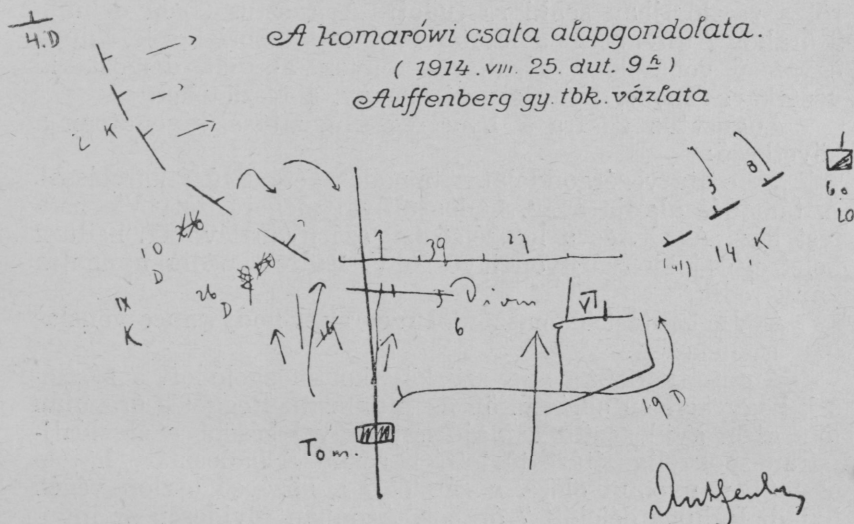 A komarówi csata alapgondolata.
( 1914. VIII. 25. dut. 9 h )
Auffenberg gy. tbk. vázlata
4. D
K
10
D
IX
K
26
D
39
27
3
8
14. K
(41)
6.
10
VI
6
19 D
Tom.
Auffenberg